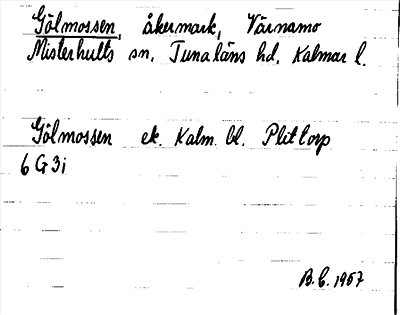 Gölmossen, åkermark, Värnamo
Misterhults sn, Tunaläns hd, Kalmar l.
Gölmossen ek. Kalm. bl. Plittorp
6 G 3i
B.C. 1957